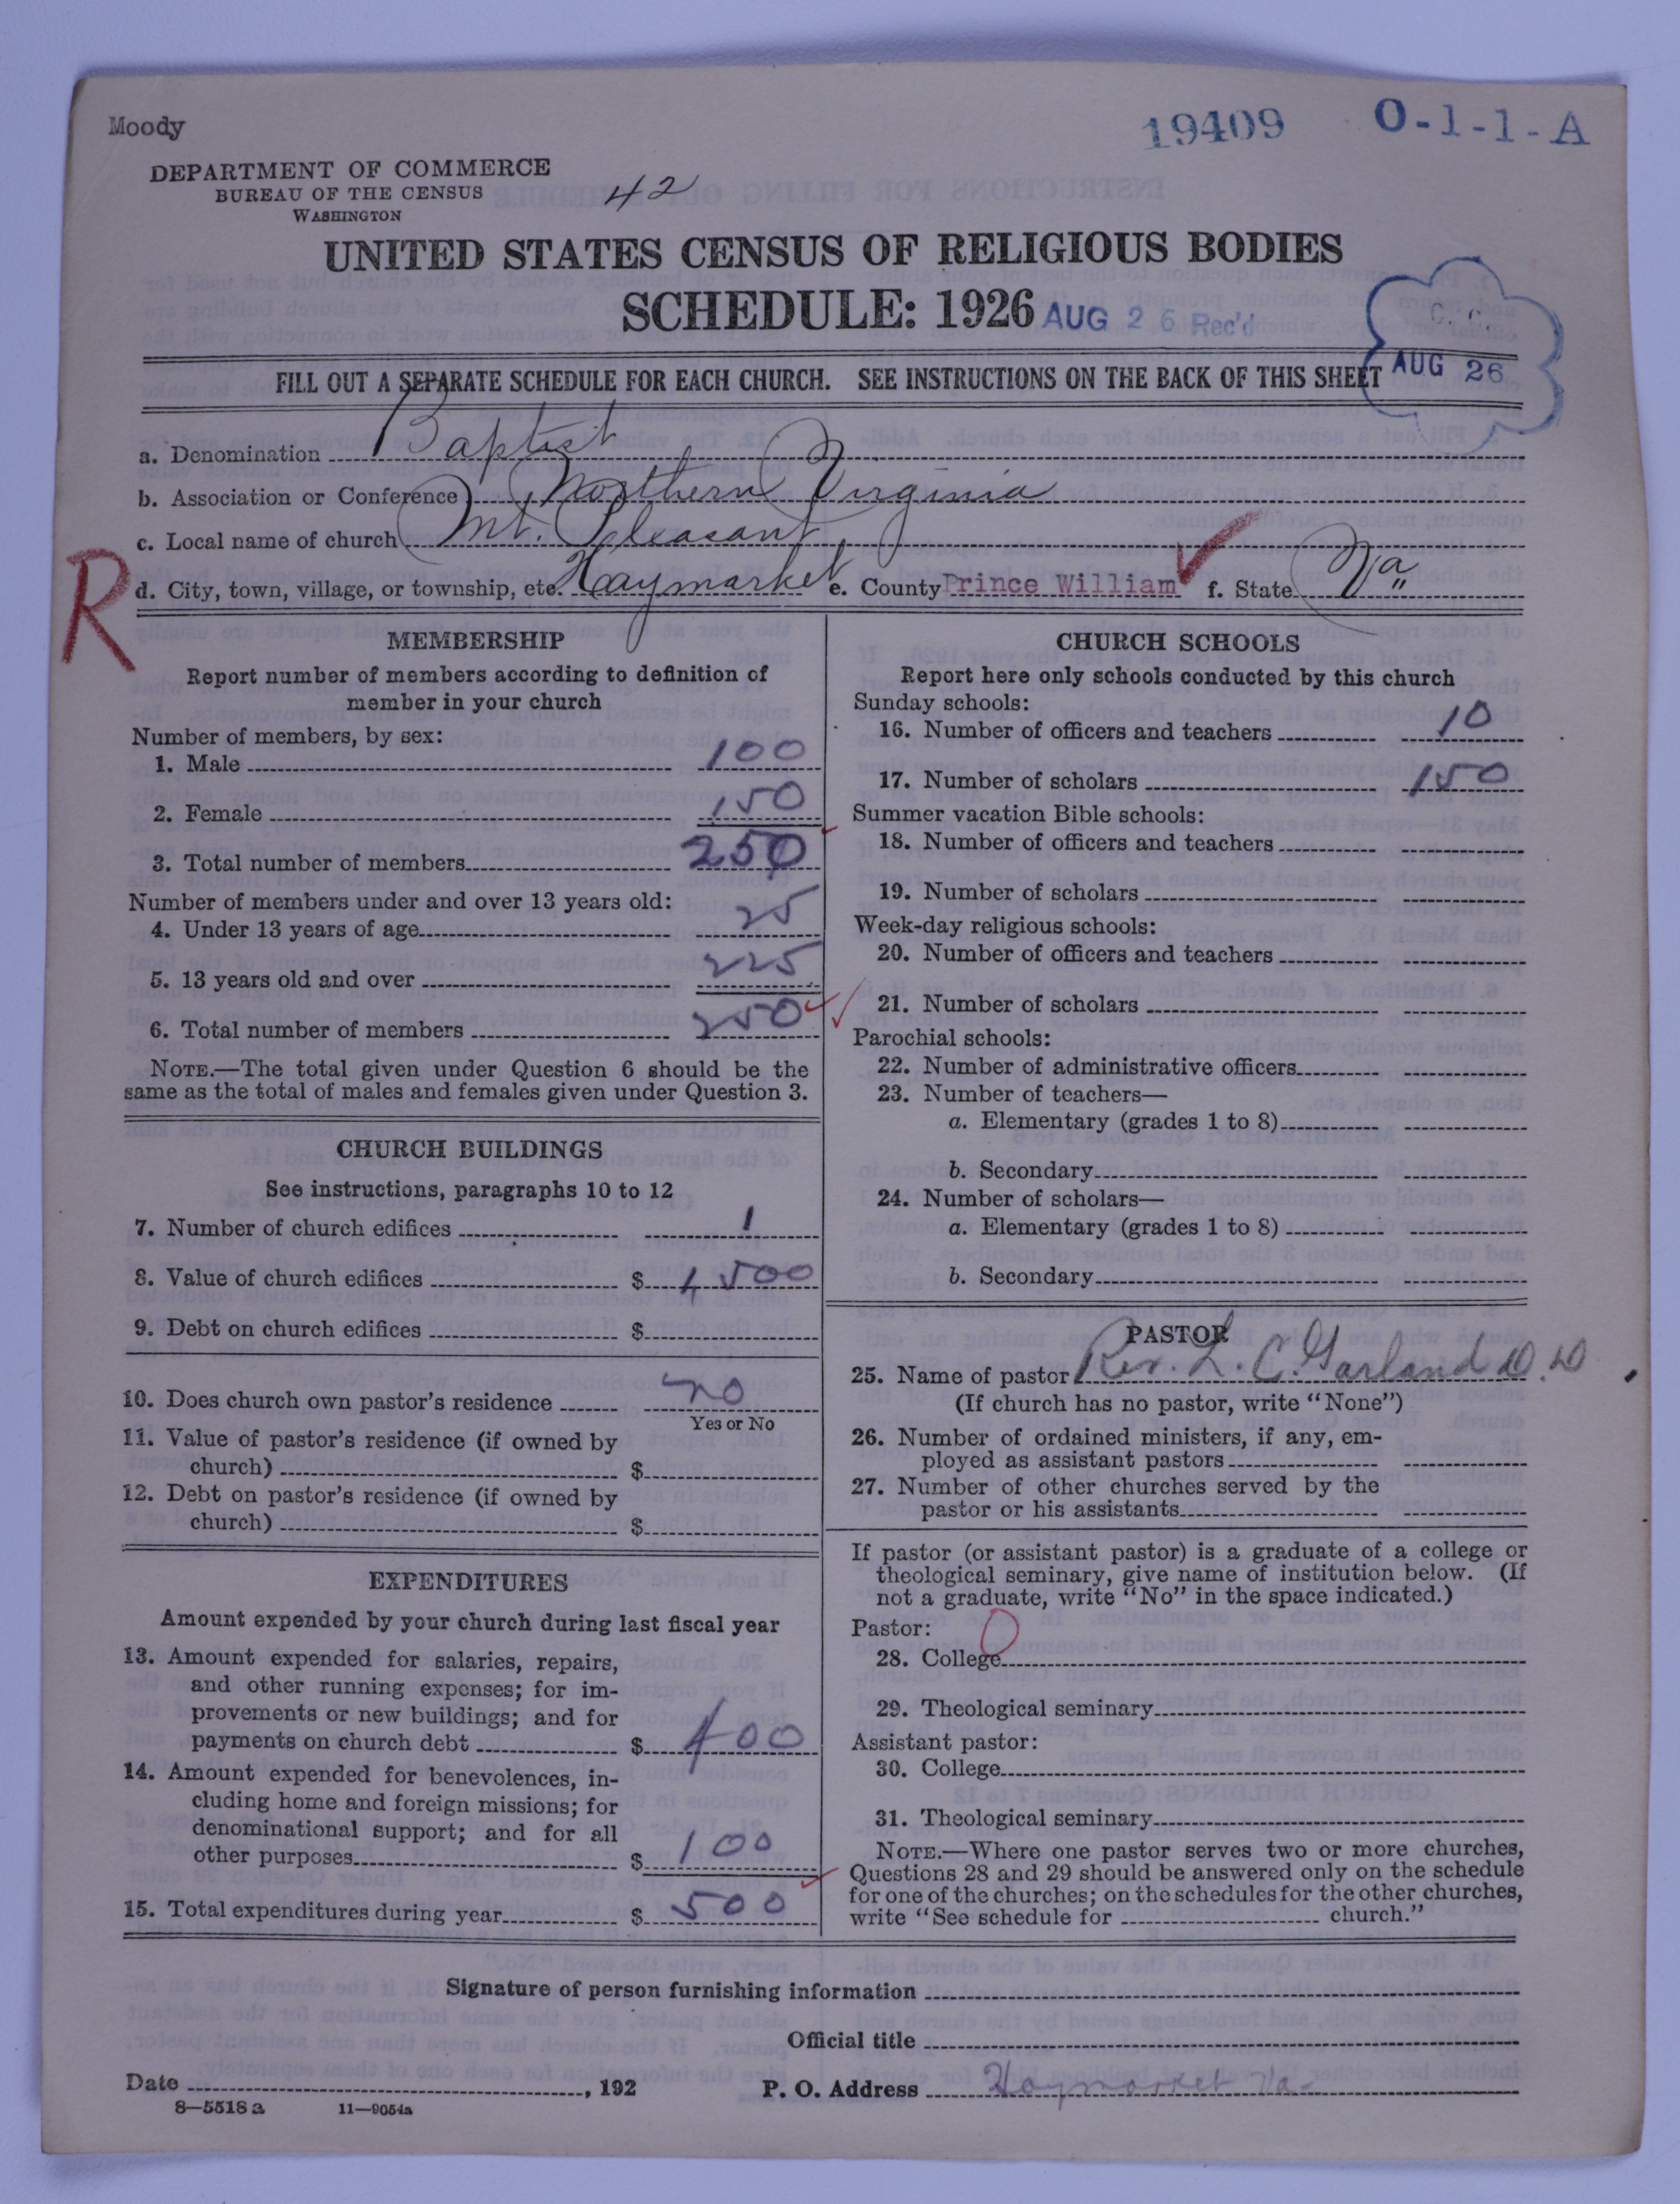 Moody
19409 O-1-1-A
DEPARTMENT OF COMMERCE
BUREAU OF THE CENSUS
WASHINGTON
42
UNITED STATES CENSUS OF RELIGIOUS BODIES
SCHEDULE: 1926
AUG 26 Rec'd
AUG 26
FILL OUT A SEPARATE SCHEDULE FOR EACH CHURCH. SEE INSTRUCTIONS ON THE BACK OF THIS SHEET
a. Denomination Baptist
b. Association or Conference Northern Virginia
c. Local name of church Mt. Pleasant
R
d. City, town, village, or township, etc. Haymarket e. County Prince William f. State Va
MEMBERSHIP
Report number of members according to definition of
member in your church
Number of members, by sex:
1. Male 100
2. Female 150
3. Total number of members 250
Number of members under and over 13 years old:
4. Under 13 years of age 25
5. 13 years old and over 225
6. Total number of members 250
NOTE.—The total given under Question 6 should be the
same as the total of males and females given under Question 3.
CHURCH BUILDINGS
See instructions, paragraphs 10 to 12
7. Number of church edifices 1
8. Value of church edifices $ 1500
9. Debt on church edifices $
10. Does church own pastor's residence no
Yes or No
11. Value of pastor's residence (if owned by
church) $
12. Debt on pastor's residence (if owned by
church) $
EXPENDITURES
Amount expended by your church during last fiscal year
13. Amount expended for salaries, repairs,
and other running expenses; for im-
provements or new buildings; and for
payments on church debt $ 400
14. Amount expended for benevolences, in-
cluding home and foreign missions; for
denominational support; and for all
other purposes $ 100
15. Total expenditures during year $ 500
CHURCH SCHOOLS
Report here only schools conducted by this church
Sunday schools:
16. Number of officers and teachers 10
17. Number of scholars 150
Summer vacation Bible schools:
18. Number of officers and teachers
19. Number of scholars
Week-day religious schools:
20. Number of officers and teachers
21. Number of scholars
Parochial schools:
22. Number of administrative officers
23. Number of teachers—
a. Elementary (grades 1 to 8)
b. Secondary
24. Number of scholars—
a. Elementary (grades 1 to 8)
b. Secondary
PASTOR
25. Name of pastor Rev. L. C. Garland D.D.
(If church has no pastor, write "None")
26. Number of ordained ministers, if any, em-
ployed as assistant pastors
27. Number of other churches served by the
pastor or his assistants
If pastor (or assistant pastor) is a graduate of a college or
theological seminary, give name of institution below. (If
not a graduate, write "No" in the space indicated.)
Pastor:
28. College
29. Theological seminary
Assistant pastor:
30. College
31. Theological seminary
NOTE.—Where one pastor serves two or more churches,
Questions 28 and 29 should be answered only on the schedule
for one of the churches; on the schedules for the other churches,
write "See schedule for church."
Signature of person furnishing information
Official title
Date , 192 P. O. Address Haymarket Va.
8—5518 a 11—9054a